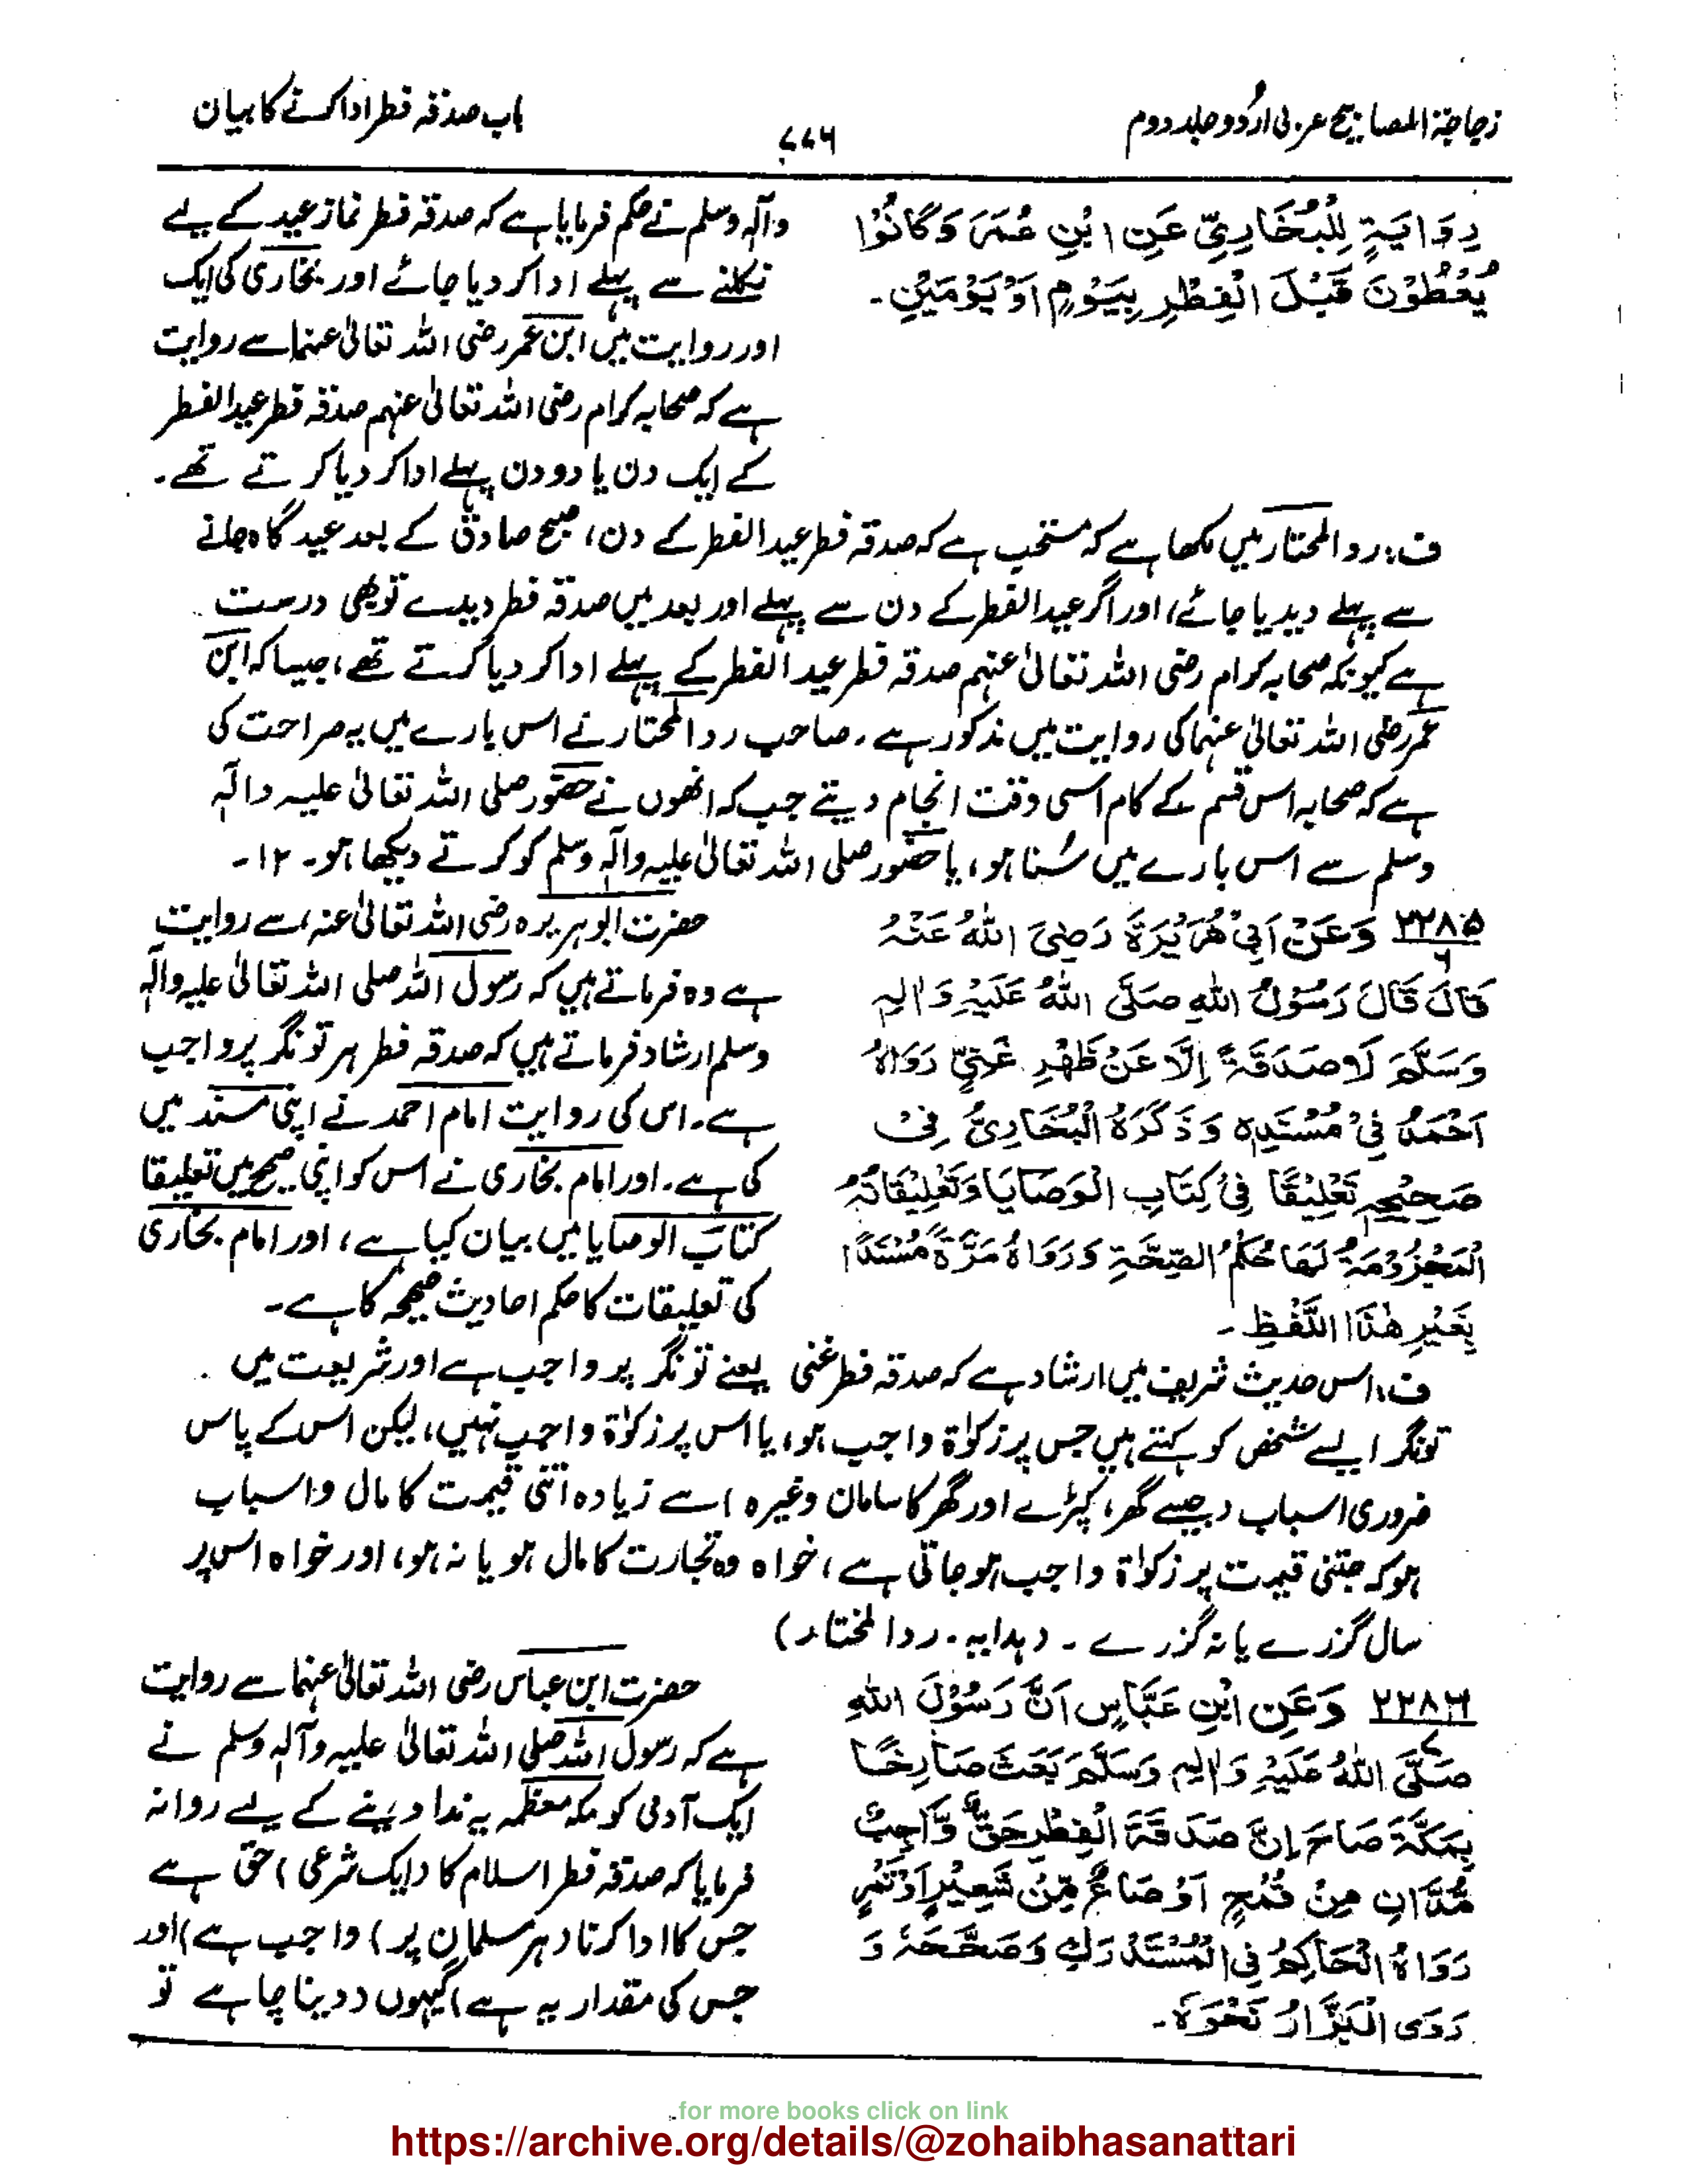 زجاجۃ المصابیح عربی اردو جلد دوم
۷۷۶
باب صدقہ فطر ادا کرنے کا بیان
رِوَايَةٍ لِلْبُخَارِيِّ عَنِ ابْنِ عُمَرَ وَكَانُوْا
يُعْطُوْنَ قَبْلَ الْفِطْرِ بِيَوْمٍ اَوْ يَوْمَيْنِ۔
وآلہ وسلم نے حکم فرمایا ہے کہ صدقہ فطر نماز عید کے لیے
نکلنے سے پہلے ادا کر دیا جائے اور بخاری کی ایک
اور روایت میں ابن عمر رضی اللہ تعالیٰ عنہما سے روایت
ہے کہ صحابہ کرام رضی اللہ تعالیٰ عنہم صدقہ فطر عید الفطر
کے ایک دن یا دو دن پہلے ادا کر دیا کرتے تھے۔
ف: رد المحتار میں لکھا ہے کہ مستحب ہے کہ صدقہ فطر عید الفطر کے دن، صبح صادق کے بعد عید گاہ جانے
سے پہلے دیدیا جائے، اور اگر عید الفطر کے دن سے پہلے اور بعد میں صدقہ فطر دیدے تو بھی درست
ہے کیونکہ صحابہ کرام رضی اللہ تعالیٰ عنہم صدقہ فطر عید الفطر کے پہلے ادا کر دیا کرتے تھے، جیسا کہ ابن
عمر رضی اللہ تعالیٰ عنہما کی روایت میں مذکور ہے۔ صاحب رد المحتار نے اس بارے میں یہ صراحت کی
ہے کہ صحابہ اس قسم کے کام اسی وقت انجام دیتے جب کہ انھوں نے حضور صلی اللہ تعالیٰ علیہ وآلہ
وسلم سے اس بارے میں سُنا ہو، یا حضور صلی اللہ تعالیٰ علیہ وآلہ وسلم کو کرتے دیکھا ہو۔ ۱۲۔
۲۲۸۵ وَعَنْ اَبِيْ هُرَيْرَةَ رَضِيَ اللهُ عَنْهُ
۶
قَالَ قَالَ رَسُوْلُ اللهِ صَلَّى اللهُ عَلَيْهِ وَاٰلِهٖ
وَسَلَّمَ لَا صَدَقَةً اِلَّا عَنْ ظَهْرِ غَنِيٍّ رَوَاهُ
اَحْمَدُ فِيْ مُسْنَدِهٖ وَذَكَرَهُ الْبُخَارِيُّ فِيْ
صَحِيْحِهٖ تَعْلِيْقًا فِيْ كِتَابِ الْوَصَايَا وَتَعْلِيْقَاتُهُ
الْمَجْزُوْمَةُ لَهَا حُكْمُ الصِّحَّةِ وَرَوَاهُ مَرَّةً مُسْنَدًا
بِغَيْرِ هٰذَا اللَّفْظِ۔
حضرت ابو ہریرہ رضی اللہ تعالیٰ عنہ، سے روایت
ہے وہ فرماتے ہیں کہ رسول اللہ صلی اللہ تعالیٰ علیہ وآلہ
وسلم ارشاد فرماتے ہیں کہ صدقہ فطر ہر تونگر پر واجب
ہے۔ اس کی روایت امام احمد نے اپنی مسند میں
کی ہے۔ اور امام بخاری نے اس کو اپنی صحیح میں تعلیقا
کتاب الوصایا میں بیان کیا ہے، اور امام بخاری
کی تعلیقات کا حکم احادیث صحیحہ کا ہے۔
ف: اس حدیث شریف میں ارشاد ہے کہ صدقہ فطر غنی یعنے تونگر پر واجب ہے اور شریعت میں
تونگر ایسے شخص کو کہتے ہیں جس پر زکوٰۃ واجب ہو، یا اس پر زکوٰۃ واجب نہیں، لیکن اس کے پاس
ضروری اسباب (جیسے گھر، کپڑے اور گھر کا سامان وغیرہ) سے زیادہ اتنی قیمت کا مال و اسباب
ہو کہ جتنی قیمت پر زکوٰۃ واجب ہو جاتی ہے، خواہ وہ تجارت کا مال ہو یا نہ ہو، اور خواہ اس پر
سال گزرے یا نہ گزرے۔ (ہدایہ۔ رد المختار)
۲۲۸۶ وَعَنِ ابْنِ عَبَّاسٍ اَنَّ رَسُوْلَ اللهِ
۷
صَلَّى اللهُ عَلَيْهِ وَاٰلِهٖ وَسَلَّمَ بَعَثَ صَارِخًا
بِمَكَّةَ صَاحَ اِنَّ صَدَقَةَ الْفِطْرِ حَقٌّ وَّاجِبٌ
مُدَّانِ مِنْ قُمْحٍ اَوْ صَاعٌ مِّنْ شَعِيْرٍ اَوْ تَمْرٍ
رَوَاهُ الْحَاكِمُ فِي الْمُسْتَدْرَكِ وَصَحَّحَهُ وَ
رَوَى الْبَزَّارُ نَحْوَهٗ۔
حضرت ابن عباس رضی اللہ تعالیٰ عنہما سے روایت
ہے کہ رسول اللہ صلی اللہ تعالیٰ علیہ وآلہ وسلم نے
ایک آدمی کو مکہ معظمہ یہ ندا دینے کے لیے روانہ
فرمایا کہ صدقہ فطر اسلام کا (ایک شرعی) حق ہے
جس کا ادا کرنا (ہر مسلمان پر) واجب ہے (اور
جس کی مقدار یہ ہے) گیہوں (دینا چاہے تو
for more books click on link
https://archive.org/details/@zohaibhasanattari